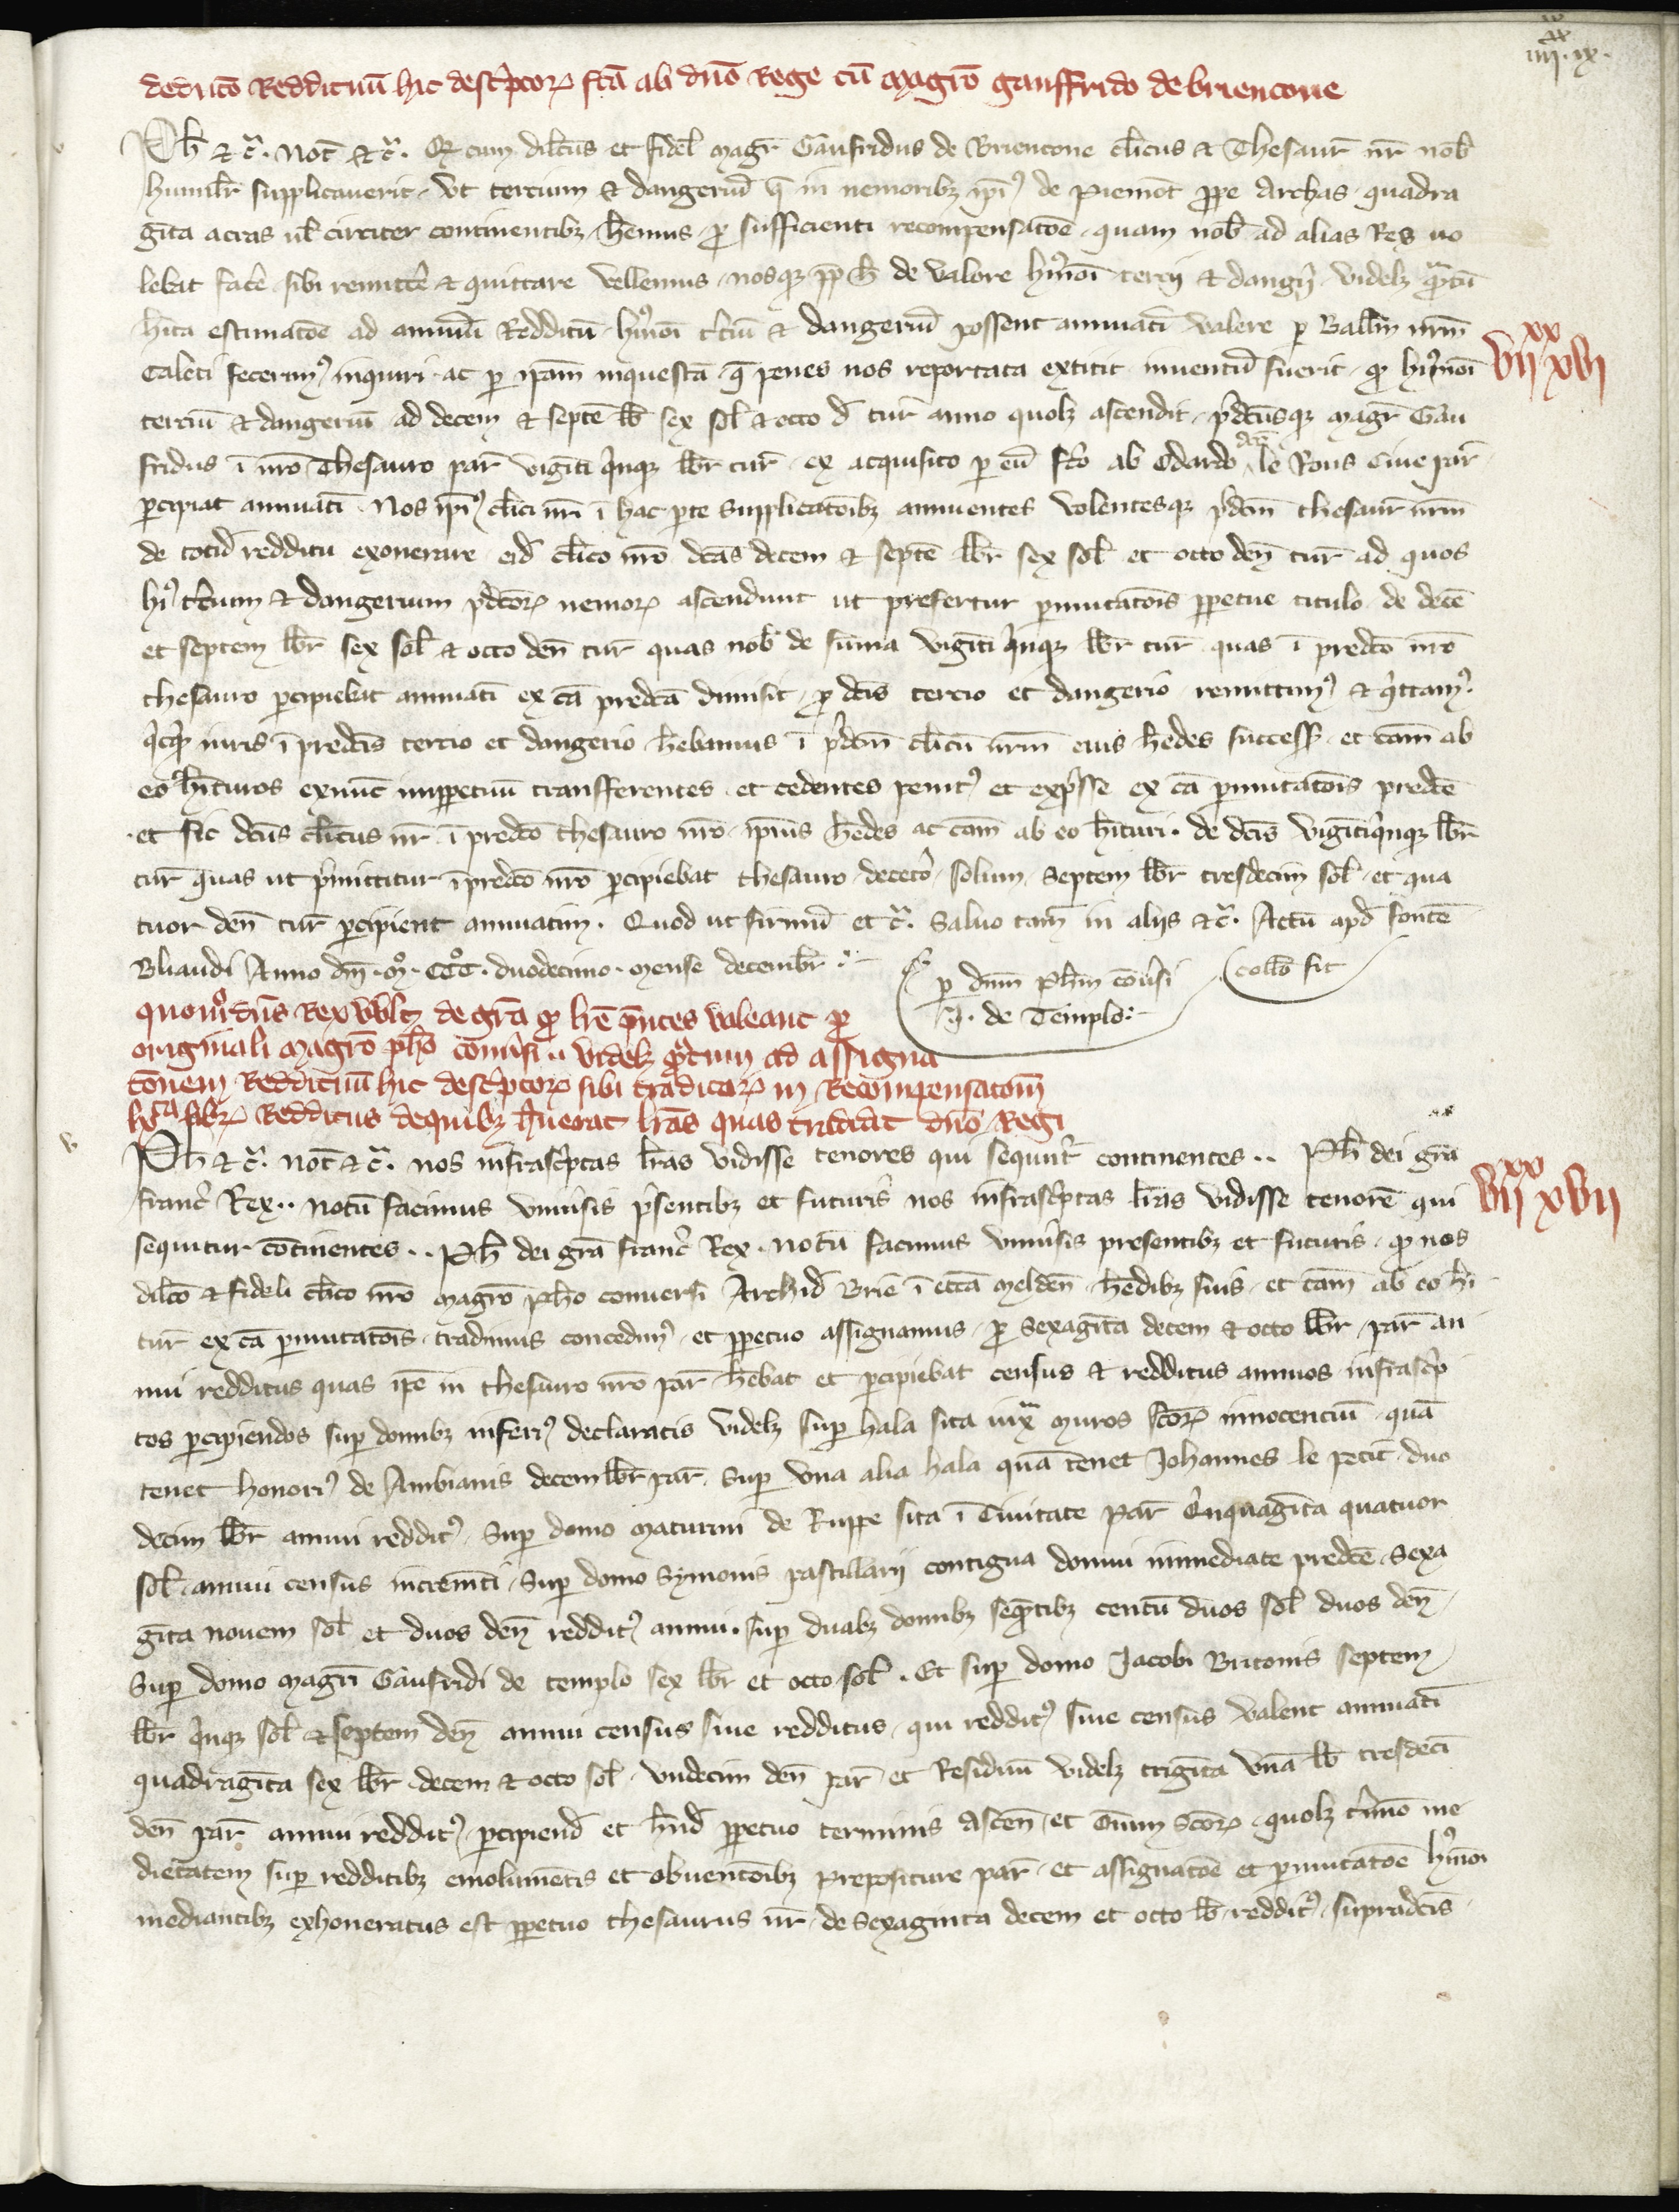 iiij^xx. ix.
deducto Reddituũ hic descͥptoꝝ fcã ab dño Rege cũ magrõ gauffrido de briencone
Ph̃ ⁊ c̃. Not̃ ⁊ c̃. Qͦ cum dilc̃us et fidel̃ magr̃ Gaufridus de Briencone cl̃icus ⁊ Thesaur̃ nr̃ nob̃
humilr̃ supplicauerit, vt tercium ⁊ dangeriũ q̃ in nemoribꝫ ip̃iꝰ de Piemõt ꝓpe Archas quadra
gĩta acras ul̃ circiter continentibꝫ hẽmus, ꝓ sufficienti recompensatõe, quam nob̃ ad alias Res uo
lebat facẽ sibi remittẽ ⁊ quittare vellemus, nosqꝫ de valore hmõi tercij ⁊ dangẽij videlꝫ qᵃtũ
hĩta estimatõe ad annuũ Redditũ hmõi t̃ciũ ⁊ dangeriũ possent annuatĩ valere ꝑ Ballm̃ nrm̃
Caleti fecerimꝰ inquiri ac ꝑ ipam̃ inquestã q̃ penes nos reportata extitit inuentũ fuerit, qͦ hmõi
terciũ ⁊ dangeriũ ad decem ⁊ septẽ lb̃ sex sol̃ ⁊ octo d̃ tur̃ anno quolꝫ ascendit, p̃dc̃usqꝫ magr̃ Gau
fridus ĩ nrõ Thesauro par̃ vigĩti q̃nqꝫ lbr̃ tur̃ ex acquisito ꝑ eũ fc̃o ab Odardo dc̃o le Rous Ciue par̃
ꝑcipiat annuatĩ. Nos ip̃iꝰ cl̃ici nrĩ ĩ hac ꝑte supplicatõibꝫ annuentes volentesqꝫ p̃dc̃m thesaur̃ nrm̃
de totid̃ redditu exonerare eid̃ cl̃ico nrõ dc̃as decem ⁊ septẽ lbr̃ sex sol̃ et octo deñ tur̃ ad quos
hiꝰ t̃cium ⁊ dangerium p̃dc̃oꝝ nemoꝝ ascendunt ut prefertur ꝑmutatõis ꝑpetue titulo de decẽ
et septem lbr̃ sex sol̃ ⁊ octo deñ tur̃ quas nob̃ de sũma vigĩti q̃nqꝫ lbr̃ tur̃ quas ĩ predc̃o nrõ
thesauro ꝑcipiebat annuatĩ ex cã predc̃a dimisit, ꝓ dc̃is tercio et dangerio remittimꝰ ⁊ q̃ttamꝰ.
q̃cqͥd iuris ĩ predc̃is tercio et dangerio hẽbamus ĩ p̃dc̃m cl̃icũ nrm̃ eius hẽdes success̃ et cam̃ ab
eo hĩturos exnũc imꝑpetuũ transfferentes et cedentes penitꝰ et exp̃sse ex cã ꝑmutatõis predc̃e
et sic dc̃us cl̃icus nr̃ ĩ predc̃o thesauro nrõ ip̃ius hẽdes ac cam̃ ab eo hĩturi. de dc̃is vigĩtiq̃nqꝫ lbr̃
tur̃ quas ut p̃mittitur ĩ predc̃o nrõ ꝑcipiebat thesauro decetõ solum septem lbr̃ tresdecim sol̃ et qua
tuor deñ tur̃ ꝑcipient annuatim. Quod ut firmũ et c̃. Saluo tam̃ in alijs ⁊c̃. Actũ apd̃ fontẽ
Bliaudi Anno dm̃. mͦ. CCCͦ. duodecimo mense decembr̃.
ꝑ dnm̃ Ph̃m cõuˀsi
J. de Templo.
Coll̃o fit
quomͦ dñs Rex vult de grã qͦ lrẽ p̃ntes valeant ꝓ
originali magrõ pho cõuˀsi .. videlꝫ qᵃtum ad assigna
tõem Reddituũ hic descͥptoꝝ sibi traditoꝝ in Recompensatõm̃
Redditus dequibꝫ hũerat lrãs quas tradidit dño Regi
Ph̃ ⁊ c̃. not̃ ⁊ c̃. nos infrascͥptas lrãs vidisse tenores qui sequnt̃ continentes .. Ph̃ dei grã
franc̃ Rex .. notũ facimus vniuˀsis p̃sentibꝫ et futuris nos infrascͥptas lrãs vidisse tenorẽ qui
sequitur cõtinentes .. Ph̃ dei grã franc̃ Rex. notũ facimus vniuˀsis presentibꝫ et futuris, qͦ nos
dilc̃o ⁊ fideli cl̃ico nrõ magrõ pho conuersi Archid̃ Brie ĩ eccã melden̄ hẽdibꝫ suis et cam̃ ab eo hĩ
tur̃ ex cã ꝑmutatõis tradimus concedimꝰ et ꝑpetuo assignamus, ꝓ sexagĩta decem ⁊ octo lbr̃ par̃ an
nui redditus quas ip̃e in thesauro nrõ par̃ hẽbat et ꝑcipiebat census ⁊ redditus annuos infrascͥp
tos ꝑcipiendos suꝑ domibꝫ inferiꝰ declaratis videlꝫ suꝑ hala sita iuxᵃ muros sc̃oꝝ innocenciũ quã
tenet honoriꝰ de Ambianis decem lbr̃ par̃. Suꝑ vna alia hala quã tenet Johannes le petit, duo
decim lbr̃ annui redditꝰ. Suꝑ domo maturini de Ruppe sita ĩ Ciuitate par̃ q̃nquagĩta quatuor
sol̃ annui census incremẽti. Suꝑ domo Symonis pastillarij contigua domui immediate predc̃e sexa
gĩta nouem sol̃ et duos deñ redditꝰ annui. suꝑ duabꝫ domibꝫ seqũtibꝫ centũ duos sol̃ duos deñ.
Suꝑ domo magrĩ Gaufridi de templo sex lbr̃ et octo sol̃. Et suꝑ domo Jacobi Britonis septem
lbr̃ q̃nqꝫ sol̃ ⁊ septem deñ annui census siue redditus, qui redditꝰ siue census valent annuatĩ
quadragĩta sex lbr̃ decem ⁊ octo sol̃ vndecim deñ par̃ et Residuũ videlꝫ trigĩta vnã lb̃ tresdecĩ
deñ par̃ annui redditꝰ, ꝑcipiend̃ et hñd̃ ꝑpetuo terminis Ascen̄ et Oĩum Sc̃oꝝ, quolꝫ t̃mĩo me
dietatem suꝑ redditibꝫ emolumẽtis et obuentõibꝫ prepositure par̃ et assignatõe et ꝑmutatõe hmõi
mediantibꝫ exhoneratus est ꝑpetuo thesaurus nr̃ de sexaginta decem et octo lb̃ redditꝰ supradc̃is.
vii^xx xvi
vii^xx xvii